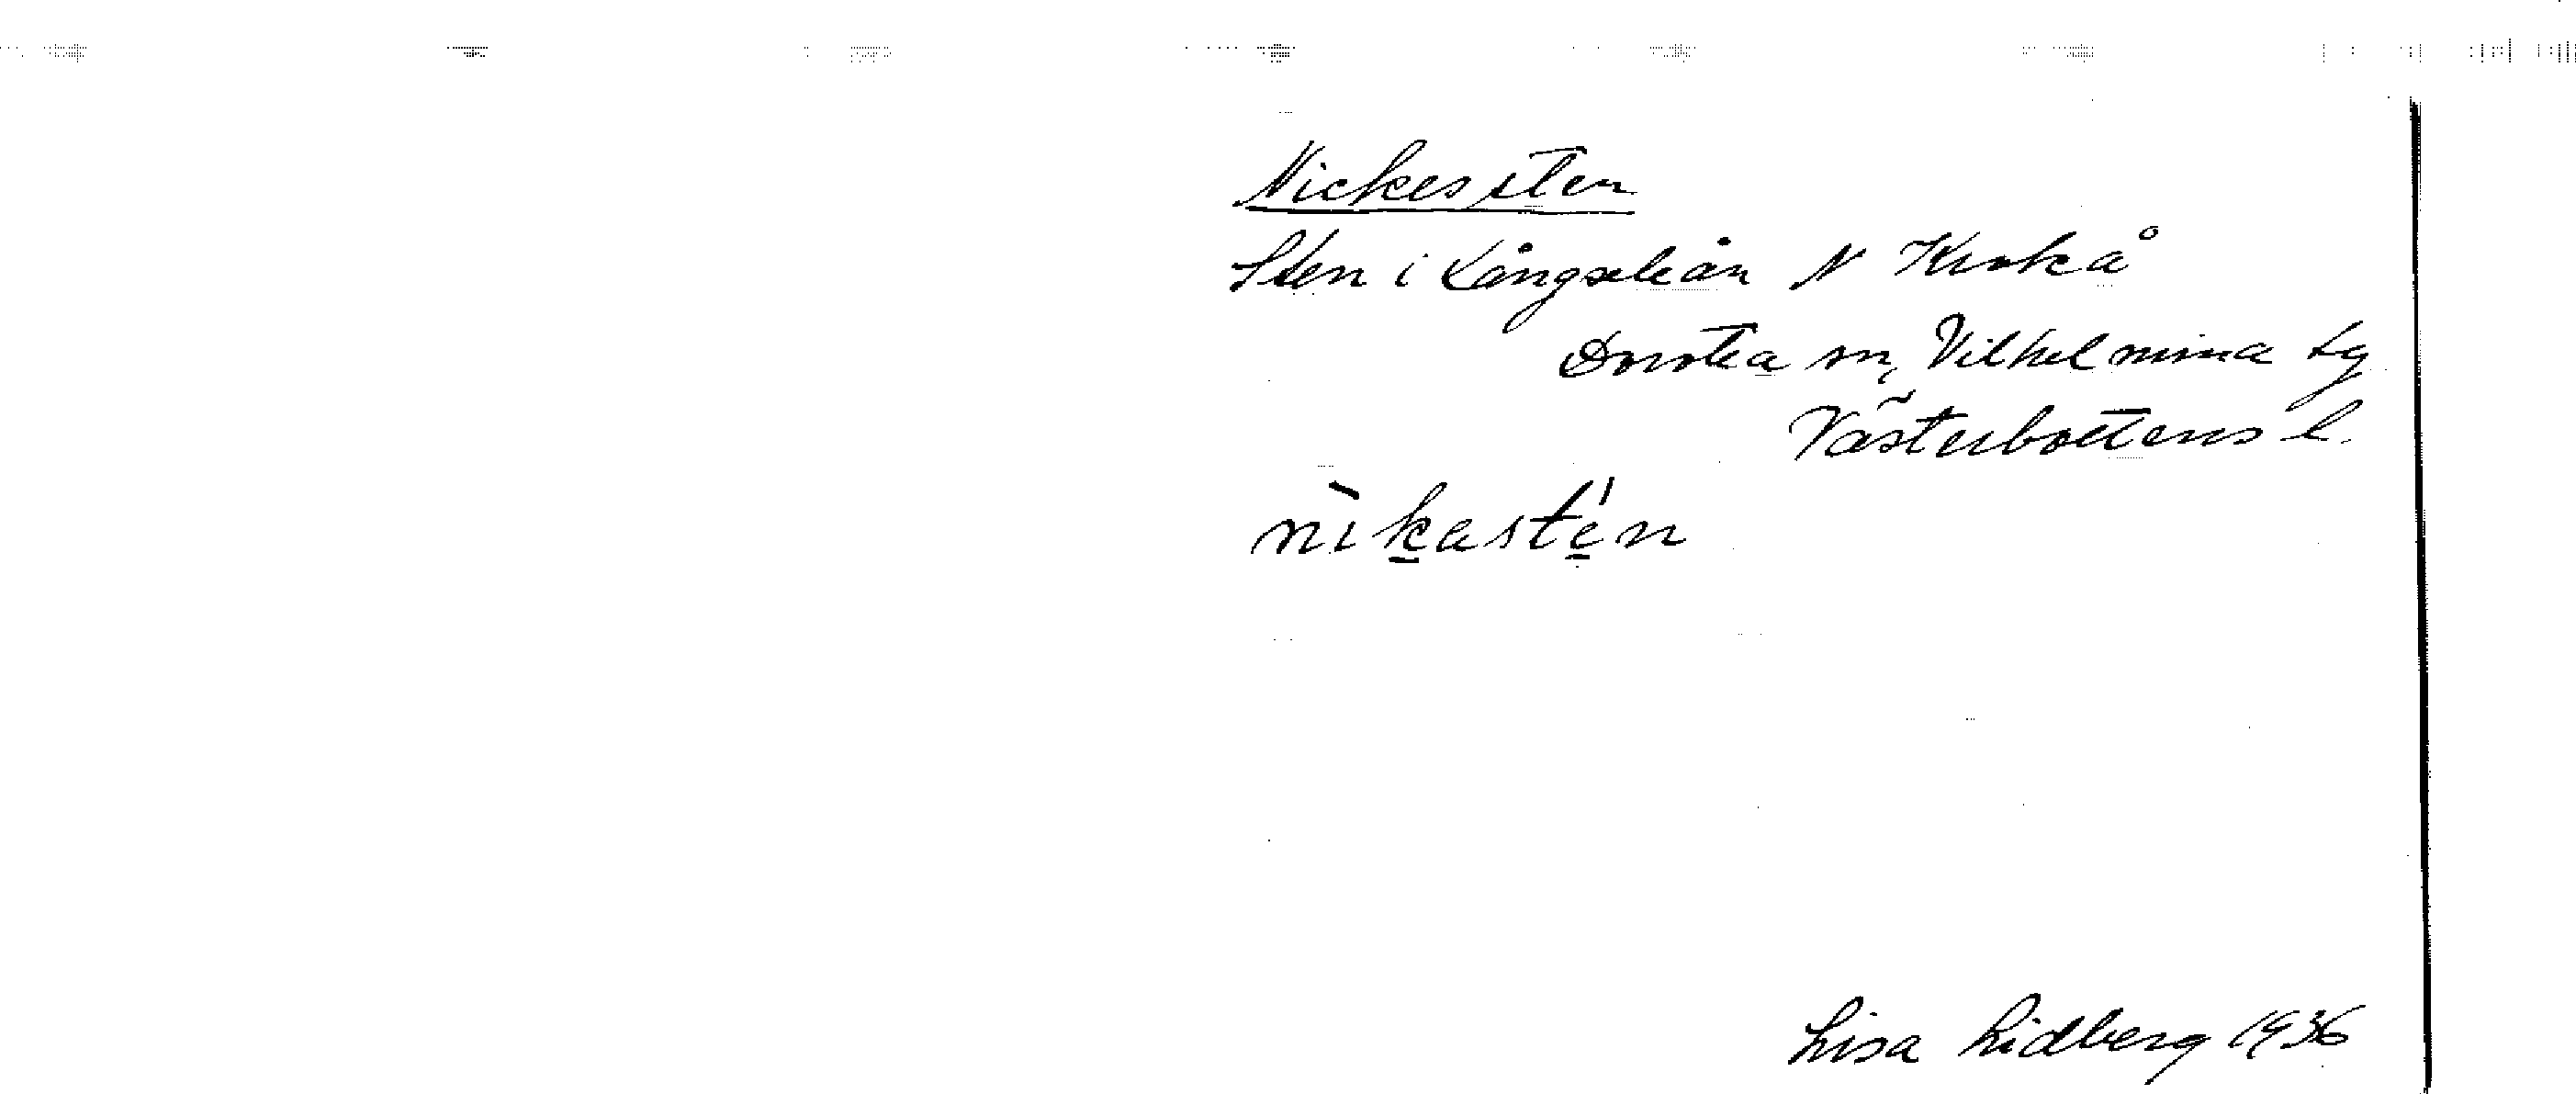 Nickessten
Sten i Långseleån N Krokå
Dorotea sn, Vilhelmina tg
Västerbottens l.
nìkastén
Lisa Lidberg 1936